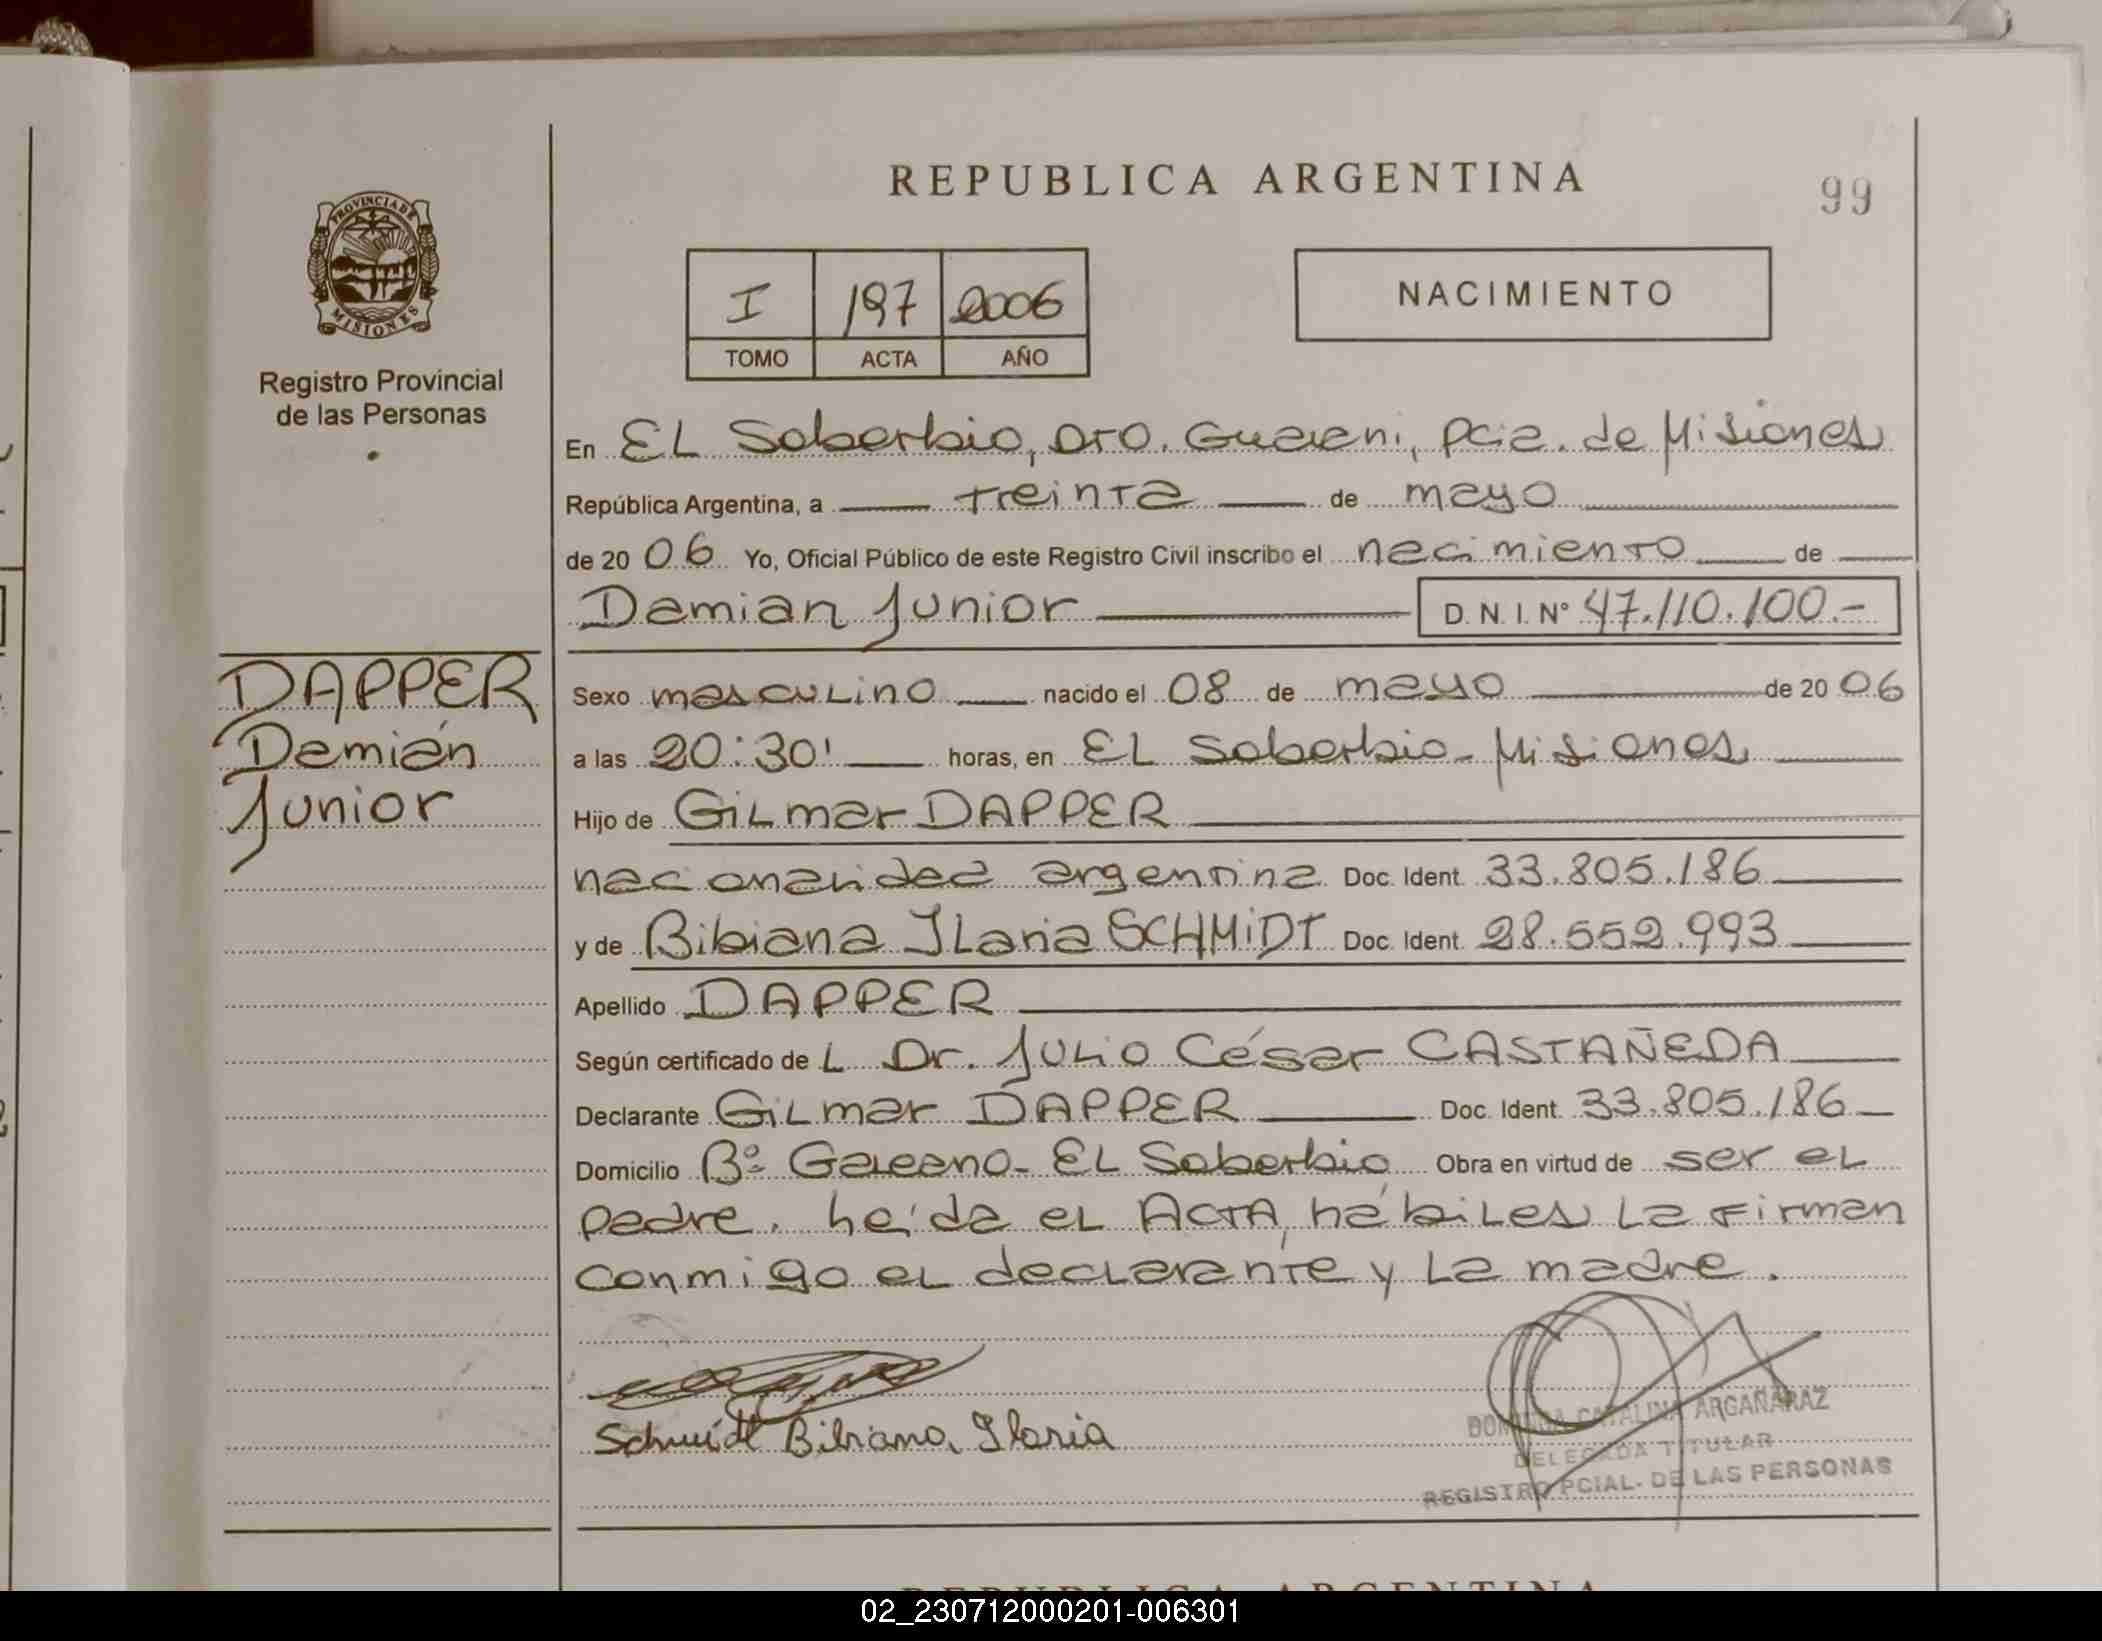 REPUBLICA ARGENTINA
99
PROVINCIA DE
MISIONES
Registro Provincial
de las Personas
I 197 2006
TOMO ACTA AÑO
NACIMIENTO
En EL Soberbio, Dto. Guarani, pcia. de Misiones
República Argentina, a treinta de mayo
de 2006 Yo, Oficial Público de este Registro Civil inscribo el nacimiento de
Damian Junior D.N.I. Nº 47.110.100.-
DAPPER
Damián
Junior
Sexo masculino nacido el 08 de mayo de 2006
a las 20:30' horas, en EL Soberbio - Misiones
Hijo de GiLmar DAPPER
nacionalidad argentina Doc. Ident. 33.805.186
y de Bibiana ILaria SCHMiDT Doc. Ident. 28.552.993
Apellido DAPPER
Según certificado de L Dr. Julio César CASTAÑEDA
Declarante GiLmar DAPPER Doc. Ident. 33.805.186
Domicilio Bº Galeano - EL Soberbio Obra en virtud de ser el
padre. Leída el ACTA, hábiles la firman
conmigo el declarante y la madre.
Schmidt Bibiana, Ilaria
CATALINA ARGAÑARAZ
DELEGADA TITULAR
REGISTRO PCIAL. DE LAS PERSONAS
REPUBLICA ARGENTINA
02_230712000201-006301